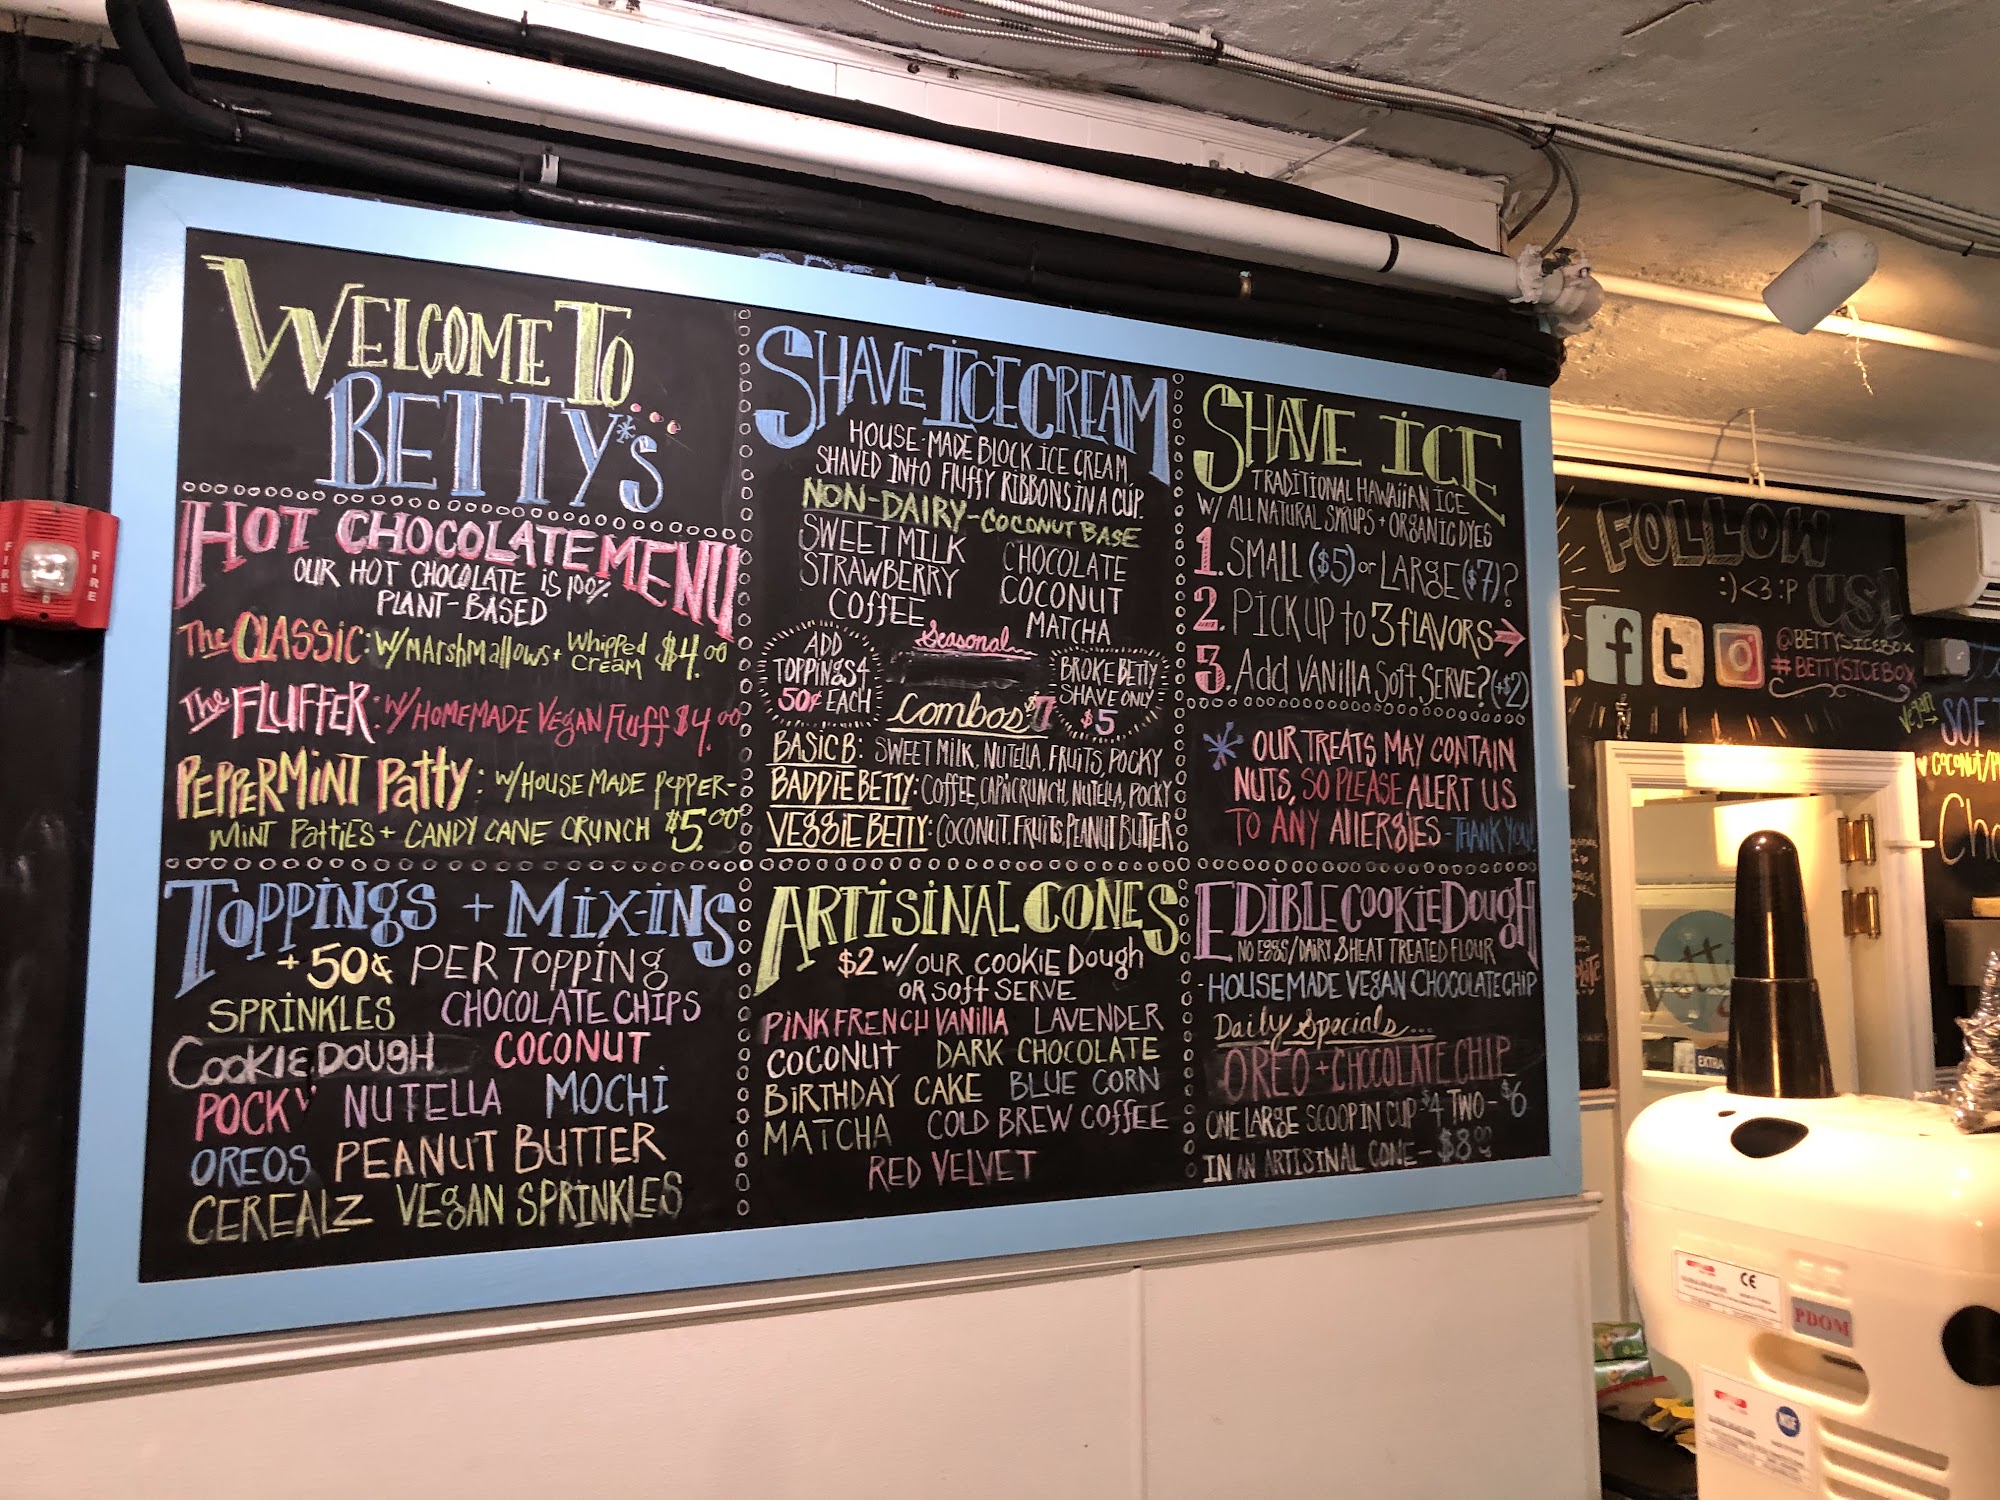 WELCOME TO
BETTY'S
HOT CHOCOLATE MENU
OUR HOT CHOCOLATE IS 100%
PLANT-BASED
The CLASSIC: W/ MARSHMALLOWS + WHIPPED CREAM $4.00
The FLUFFER: W/ HOMEMADE VEGAN FLUFF $4.00
PEPPERMINT PATTY: W/ HOUSE MADE PEPPER-
MINT PATTIES + CANDY CANE CRUNCH $5.00
TOPPINGS + MIX-INS
+50¢ PER TOPPING
SPRINKLES CHOCOLATE CHIPS
COOKIE DOUGH COCONUT
POCKY NUTELLA MOCHI
OREOS PEANUT BUTTER
CEREALZ VEGAN SPRINKLES
SHAVE ICE CREAM
HOUSE-MADE BLOCK ICE CREAM,
SHAVED INTO FLUFFY RIBBONS IN A CUP.
NON-DAIRY-COCONUT BASE
SWEET MILK CHOCOLATE
STRAWBERRY COCONUT
COFFEE MATCHA
Seasonal
ADD
TOPPINGS 4
50¢ EACH
BROKE BETTY
SHAVE ONLY
$5
Combos $7
BASIC B: SWEET MILK, NUTELLA, FRUITS, POCKY
BADDIE BETTY: COFFEE, CAP'N CRUNCH, NUTELLA, POCKY
VEGGIE BETTY: COCONUT. FRUITS, PEANUT BUTTER
ARTISINAL CONES
$2 W/ OUR COOKIE DOUGH
OR SOFT SERVE
PINK FRENCH VANILLA LAVENDER
COCONUT DARK CHOCOLATE
BIRTHDAY CAKE BLUE CORN
MATCHA COLD BREW COFFEE
RED VELVET
SHAVE ICE
TRADITIONAL HAWAIIAN ICE
W/ ALL NATURAL SYRUPS + ORGANIC DYES
1. SMALL ($5) or LARGE ($7)?
2. PICK UP to 3 FLAVORS
3. Add VANILLA SOFT SERVE? (+$2)
OUR TREATS MAY CONTAIN
NUTS, SO PLEASE ALERT US
TO ANY AllERGIES - THANK YOU!
EDIBLE COOKIE DOUGH
NO EGGS/DAIRY & HEAT TREATED FLOUR
-HOUSEMADE VEGAN CHOCOLATE CHIP
Daily Specials...
OREO + CHOCOLATE CHIP
ONE LARGE SCOOP IN CUP $4 TWO - $6
IN AN ARTISINAL CONE - $8.00
FOLLOW
:) <3 :P US!
f t
@BETTYSICEBOX
#BETTYSICEBOX
Vegan
SOF
COCONUT/P
Cho
Betty
EXTRA
FIRE
FIRE
CE
PDOM
NSF